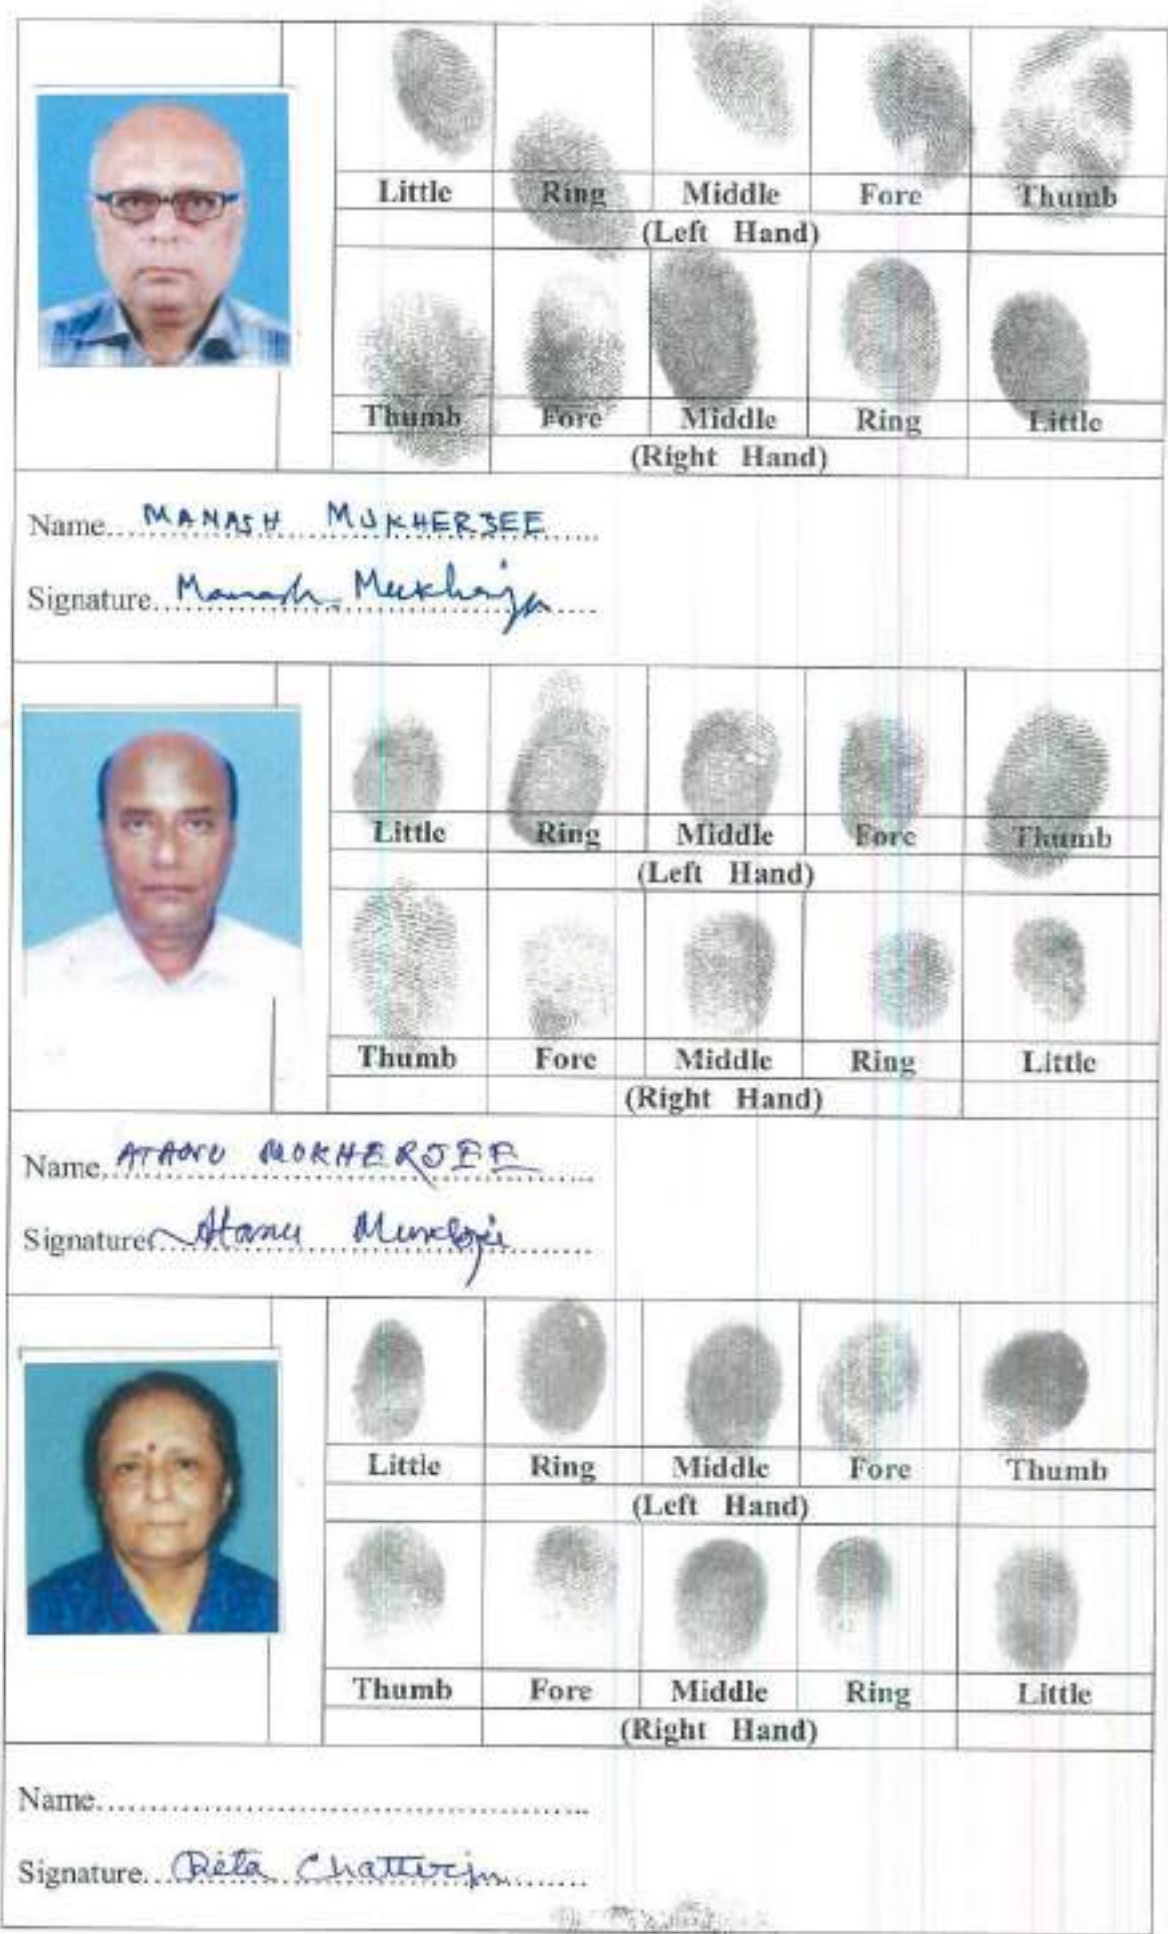 Little Ring Middle Fore Thumb
(Left Hand)
Thumb Fore Middle Ring Little
(Right Hand)
Name MANASH MUKHERJEE
Signature Manash Mukherjee
Little Ring Middle Fore Thumb
(Left Hand)
Thumb Fore Middle Ring Little
(Right Hand)
Name ATANU MUKHERJEE
Signature Atanu Mukherjee
Little Ring Middle Fore Thumb
(Left Hand)
Thumb Fore Middle Ring Little
(Right Hand)
Name
Signature Rita Chatterjee